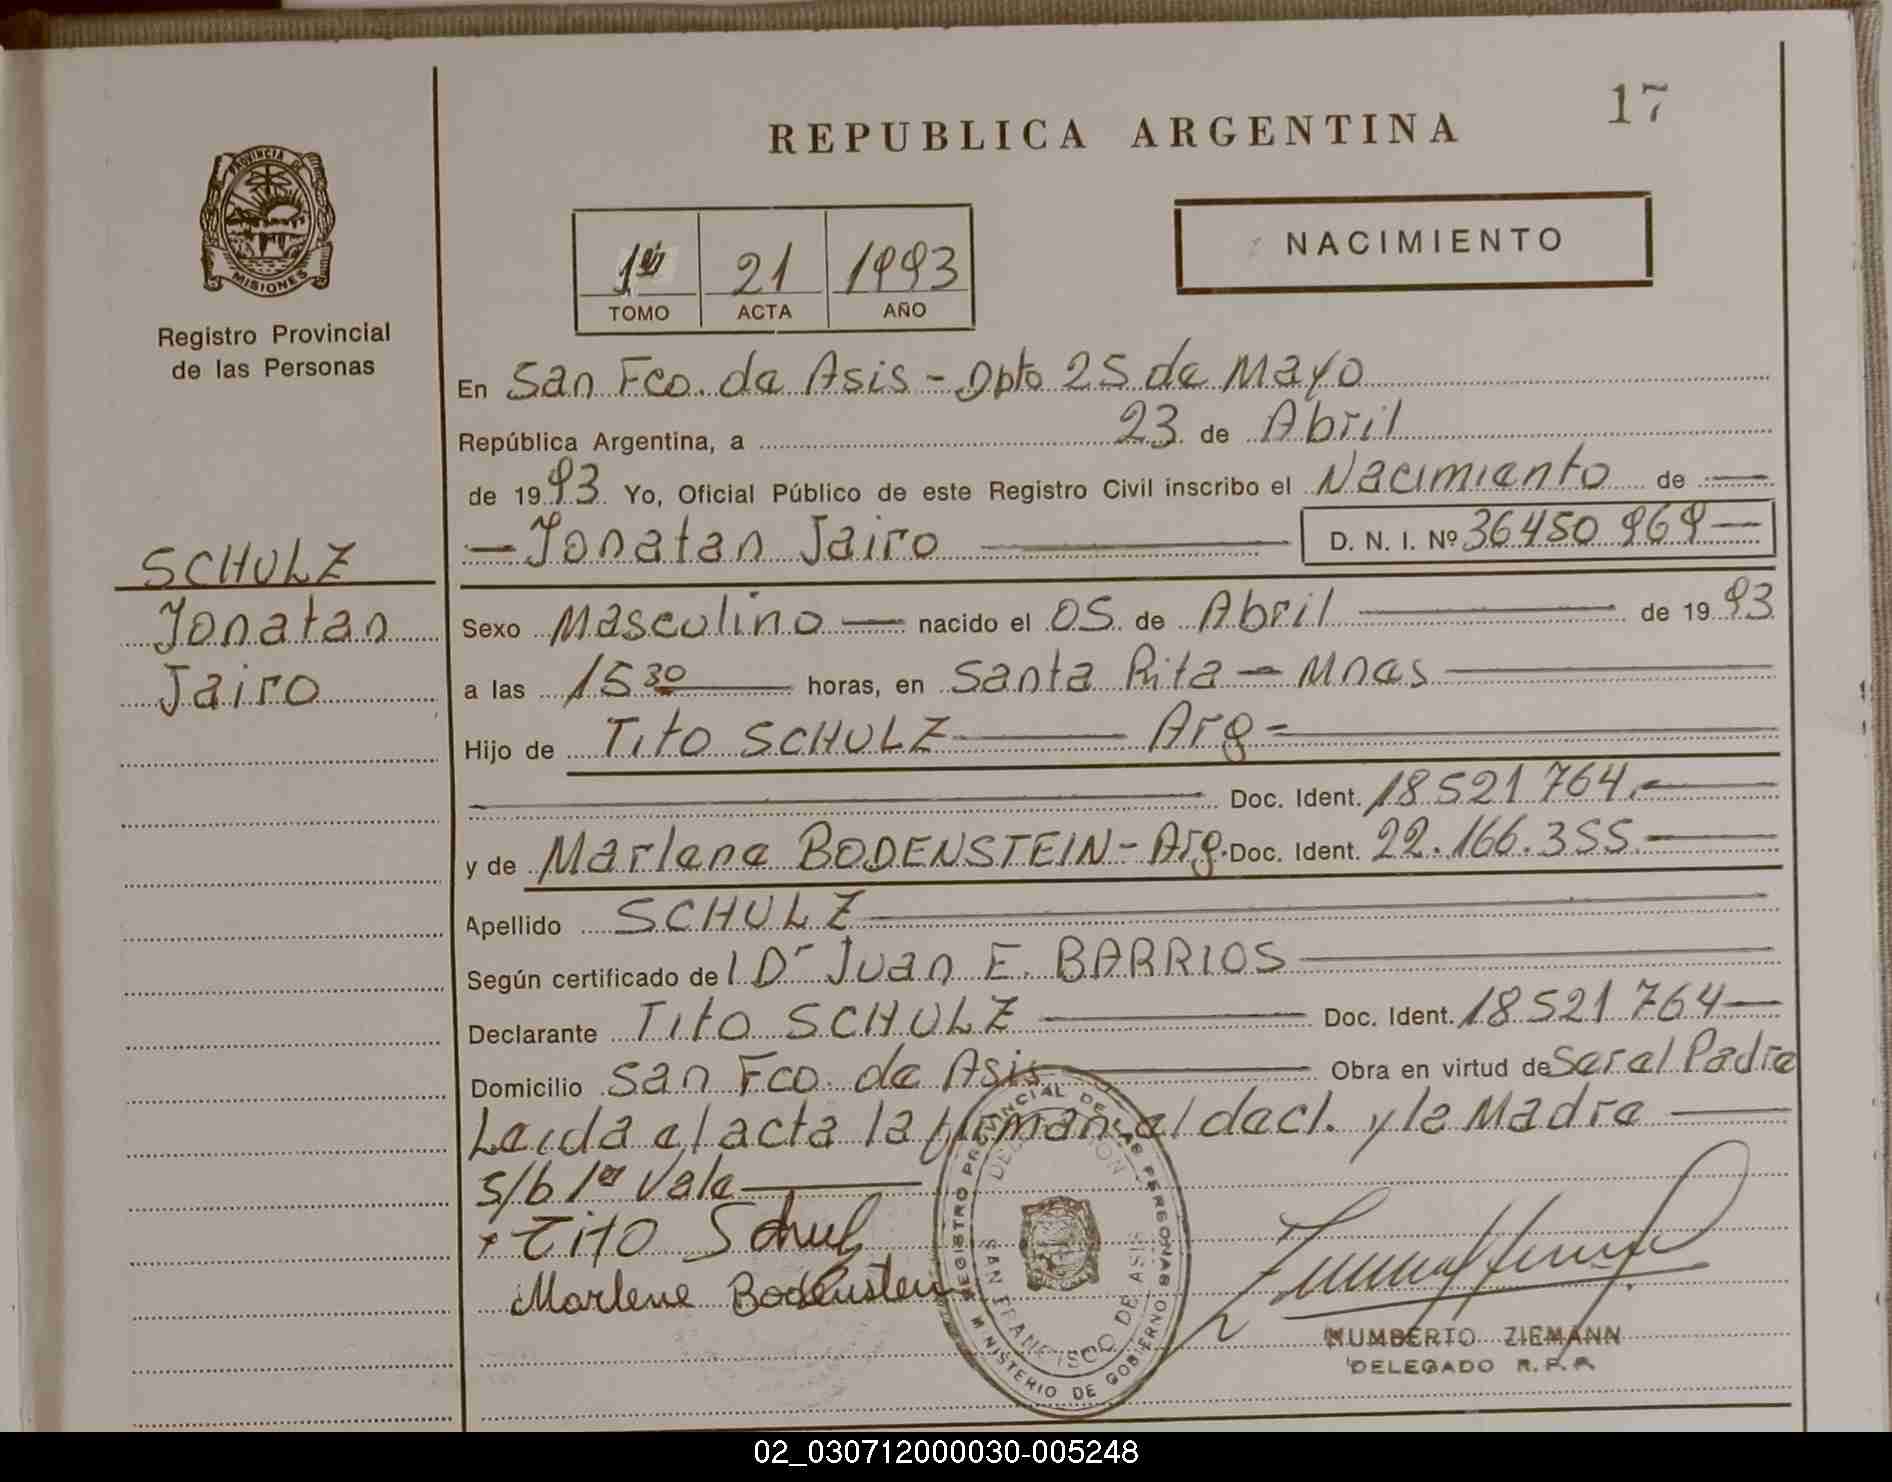 17
REPUBLICA ARGENTINA
PROVINCIA DE
MISIONES
Registro Provincial
de las Personas
21 1993
TOMO ACTA AÑO
NACIMIENTO
En San Fco. de Asis - Dpto 25 de Mayo
República Argentina, a 23 de Abril
de 1993 Yo, Oficial Público de este Registro Civil inscribo el Nacimiento de
Jonatan Jairo D. N. I. Nº 36450969
SCHULZ
Jonatan
Jairo
Sexo Masculino nacido el 05 de Abril de 1993
a las 15 30 horas, en Santa Rita - Mnes
Hijo de Tito SCHULZ Arg =
Doc. Ident. 18521764.
y de Marlene BODENSTEIN - Arg. Doc. Ident. 22.166.355
Apellido SCHULZ
Según certificado del Dr Juan E. BARRIOS
Declarante Tito SCHULZ Doc. Ident. 18521764
Domicilio San Fco. de Asis Obra en virtud de Ser el Padre
Leida el acta la firman el decl. y la Madre
s/b 1er Vale
Tito Schulz
Marlene Bodenstein
REGISTRO PROVINCIAL DE LAS PERSONAS
DELEGACION
SAN FRANCISCO DE ASIS
MINISTERIO DE GOBIERNO
HUMBERTO ZIEMANN
DELEGADO R.P.P.
02_030712000030-005248